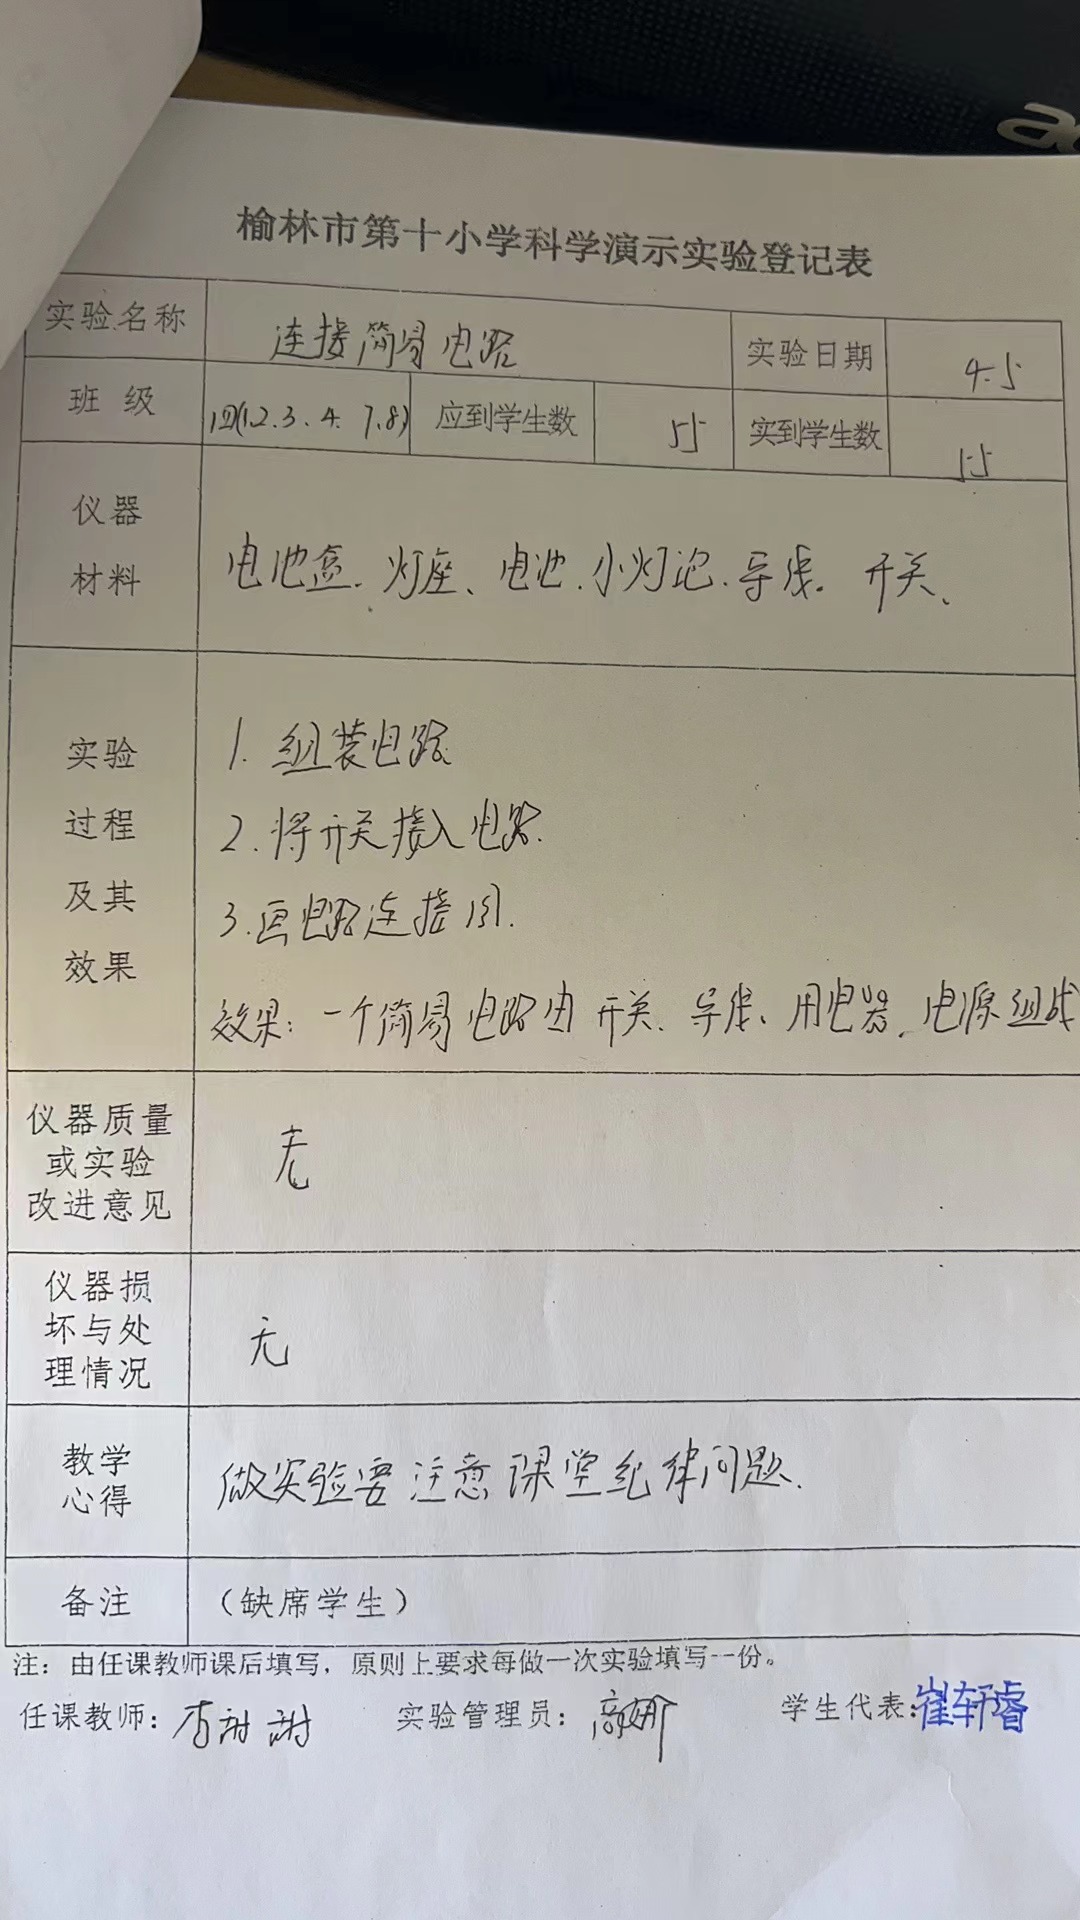 ac
榆林市第十小学科学演示实验登记表
实验名称 连接简易电路 实验日期 4.5
班 级 四(1.2.3.4.7.8) 应到学生数 55 实到学生数 55
仪器
材料
电池盒、灯座、电池、小灯泡、导线、开关、
实验
过程
及其
效果
1. 组装电路
2. 将开关接入电路.
3. 画电路连接图.
效果：一个简易电路由开关、导线、用电器、电源组成
仪器质量
或实验
改进意见
无
仪器损
坏与处
理情况
无
教学
心得
做实验要注意课堂纪律问题.
备注 （缺席学生）
注：由任课教师课后填写，原则上要求每做一次实验填写一份。
任课教师： 实验管理员：高娜 学生代表：崔轩睿